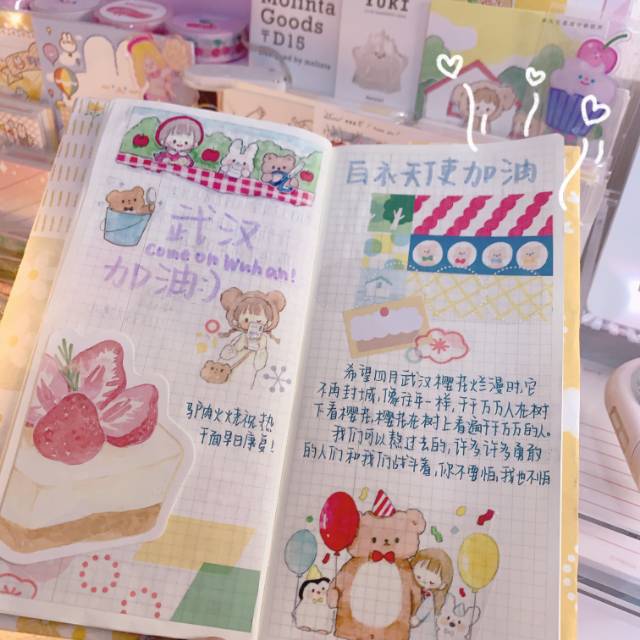 Molinta
Goods
TD15
武汉
Come on Wuhan!
加油:)
白衣天使加油
希望四月武汉樱花烂漫时,它
不再封城,像往年一样,千千万万人在树
下看樱花,樱花在树上看遍千千万万的人。
我们可以熬过去的,许多许多勇敢
的人们和我们战斗着,你不要怕,我也不怕
干面早日康复!